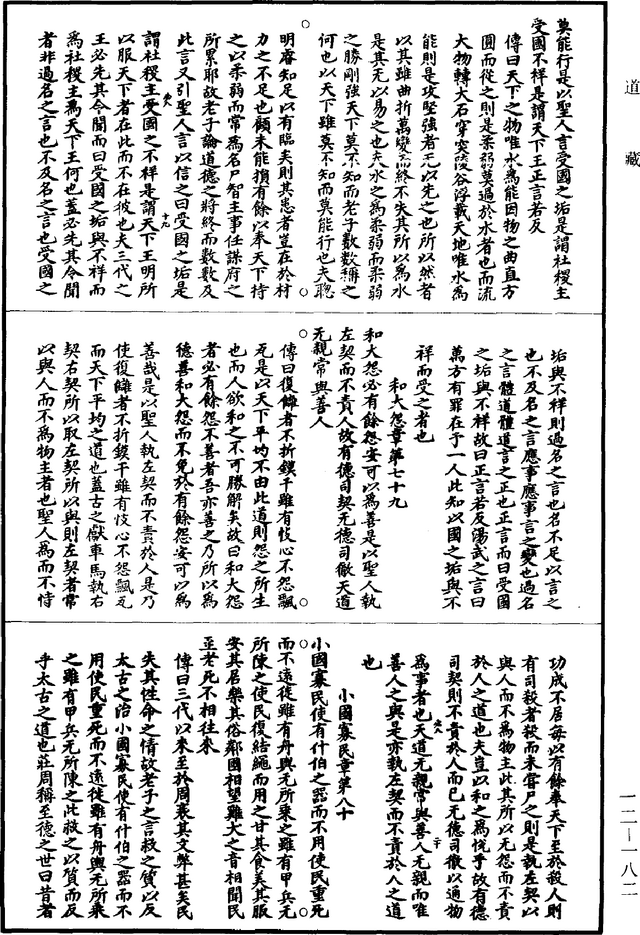 道藏
莫能行是以聖人言受國之垢是謂社稷主
受國不祥是謂天下王正言若反
傳曰天下之物唯水為能因物之曲直方
圓而從之則是柔弱莫過於水者也而流
大物轉大石穿突陵谷浮載天地唯水為
能則是攻堅強者无以先之也所以然者
以其雖曲折萬變而終不失其所以為水
是其无以易之也夫水之為柔弱而柔弱
之勝剛強天下莫不知而老子數數稱之
何也以天下雖莫不知而莫能行也夫聰
明睿知足以有臨矣則其患者豈在於材
力之不足也顧未能損有餘以奉天下持
之以柔弱而常為名尸智主事任謀府之
所累耶故老子論道德之將終而數數及
此言又引聖人言以信之曰受國之垢是
謂社稷主受國之不祥是謂天下王明所
以服天下者在此而不在彼也夫三代之
王必先其令聞而曰受國之垢與不祥而
為社稷主為天下王何也蓋必先其令聞
者非過名之言也不及名之言也受國之
垢與不祥則過名之言也名不足以言之
也不及名之言應事應事言之變也過名
之言體道體道言之正也正言而曰受國
之垢與不祥故曰正言若反湯武之言曰
萬方有罪在于一人此知以國之垢與不
祥而受之者也
和大怨章第七十九
和大怨必有餘怨安可以為善是以聖人執
左契而不責人故有德司契无德司徹天道
无親常與善人
傳曰復讎者不折鏌干雖有忮心不怨飄
瓦是以天下平均不由此道則怨之所生
也而人欲和之不可勝解矣故曰和大怨
者必有餘怨不善者吾亦善之乃所以為
德善和大怨而不免於有餘怨安可以為
善哉是以聖人執左契而不責於人是乃
使復讎者不折鏌干雖有忮心不怨飄瓦
而天下平均之道也蓋古之獻車馬執右
契右契所以取左契所以與則左契者常
以與人而不為物主者也聖人為而不恃
功成不居每以有餘奉天下至於殺人則
有司殺者殺而未嘗尸之則是執左契以
與人而不為物主此其所以无怨而不責
於人之道也夫豈以和之為悅乎故有德
司契則不責於人而已无德司徹以通物
為事者也天道无親常與善人无親而唯
善人之與是亦執左契而不責於人之道
也
小國寡民章第八十
小國寡民使有什伯之器而不用使民重死
而不遠徙雖有舟輿无所乘之雖有甲兵无
所陳之使民復結繩而用之甘其食美其服
安其居樂其俗鄰國相望雞犬之音相聞民
至老死不相往來
傳曰三代以來至於周衰其文弊甚矣民
失其性命之情故老子之言救之質以反
太古之治小國寡民使有什伯之器而不
用使民重死而不遠徙雖有舟輿无所乘
之雖有甲兵无所陳之此救之以質而反
乎太古之道也莊周稱至德之世曰昔者
一二—一八二